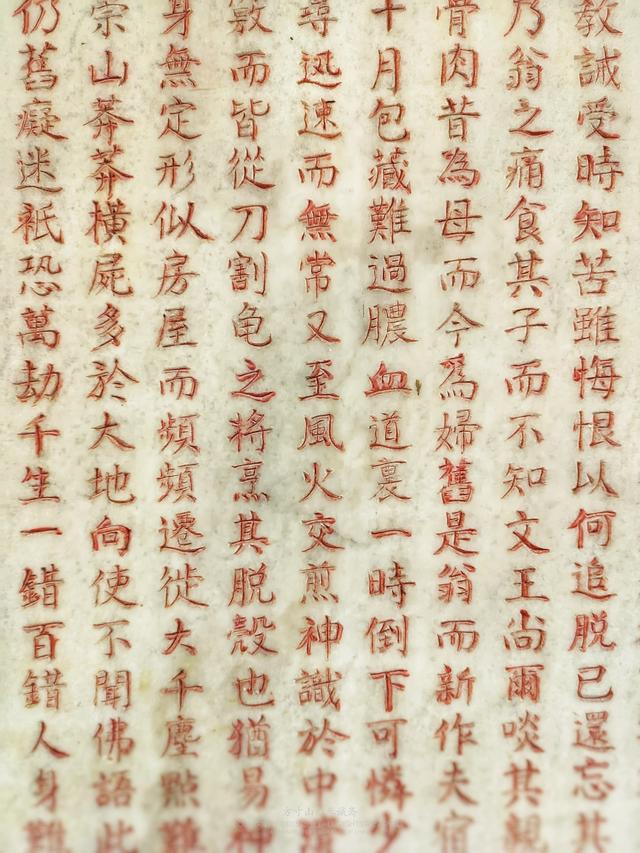 教誡受時知苦雖悔恨以何追脱已還忘其
乃翁之痛食其子而不知文王尚爾啖其親
骨肉昔為母而今爲婦舊是翁而新作夫宿
十月包藏難過膿血道裏一時倒下可憐少
尋迅速而無常又至風火交煎神識於中潰
而皆從刀割龟之將烹其脱殼也猶易神
身無定形似房屋而頻頻遷徙大千塵點難
山莽莽橫屍多於大地向使不聞佛語此
仍舊癡迷祇恐萬劫千生一錯百錯人身難